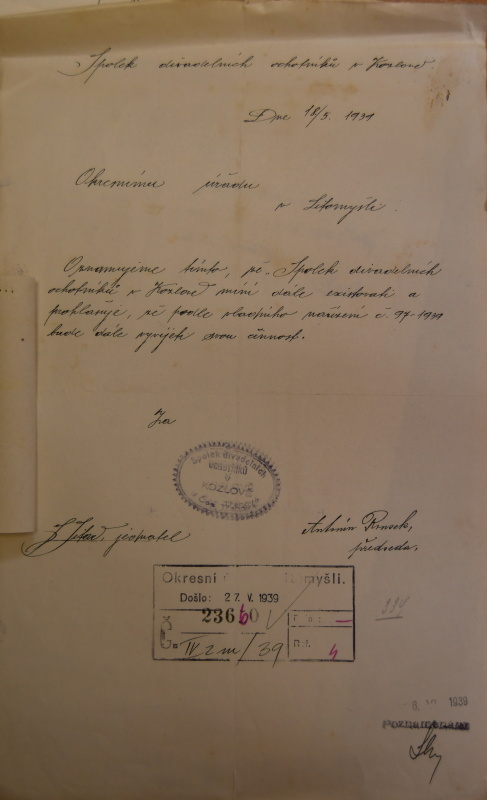 Spolek divadelních ochotníků v Kozlově.
Dne 18/5. 1939
Okresnímu úřadu
v Litomyšli.
Oznamujeme tímto, že Spolek divadelních
ochotníků v Kozlově míní dále existovati a
prohlašuje, že podle vladního nařízení č. 97-1939
bude dále vyvíjeti svou činnost.
Za
Spolek divadelních
ochotníků
v
KOZLOVĚ
jednatel
Antonín
předseda.
Okresní
Došlo: 27. V. 1939
Č
IV 2 / 39
4
1939